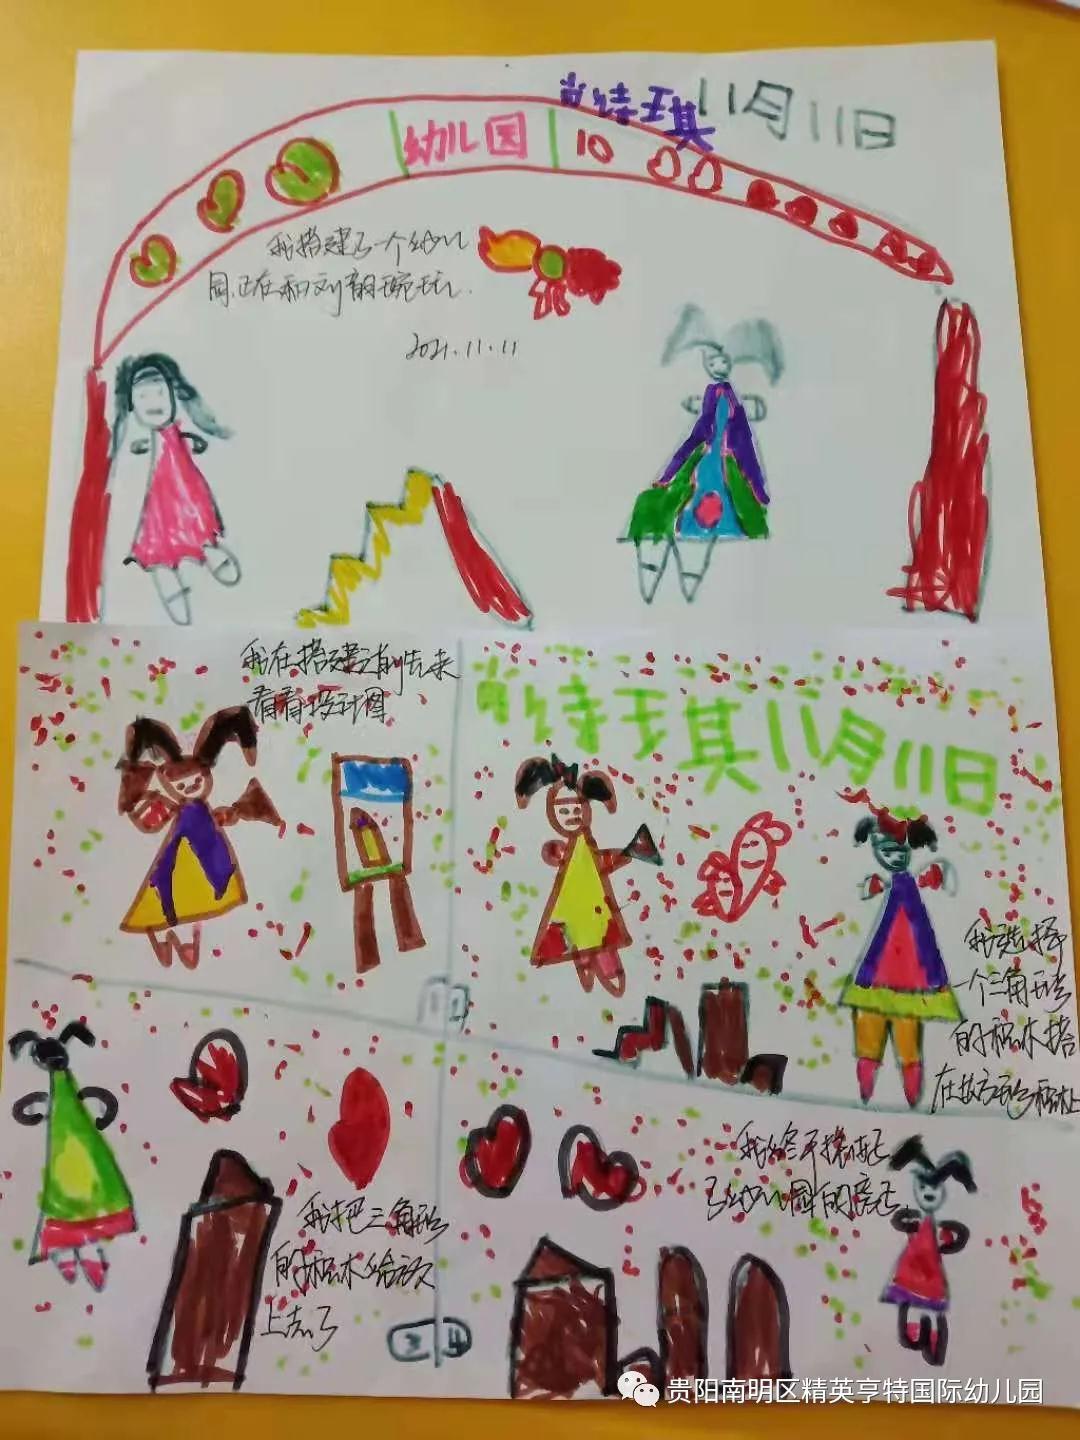 肖诗琪11月11日
幼儿园 10
我搭建了一个幼儿
园.正在和刘韵琬玩.
2021.11.11
我在搭建之前先来
看看设计图
肖诗琪11月11日
我选择
一个三角形
的积木搭
在长方形积木上
1 3
我把三角形
的积木给放
上去了
我终于搭好
了幼儿园的房子
2 4
贵阳南明区精英亨特国际幼儿园